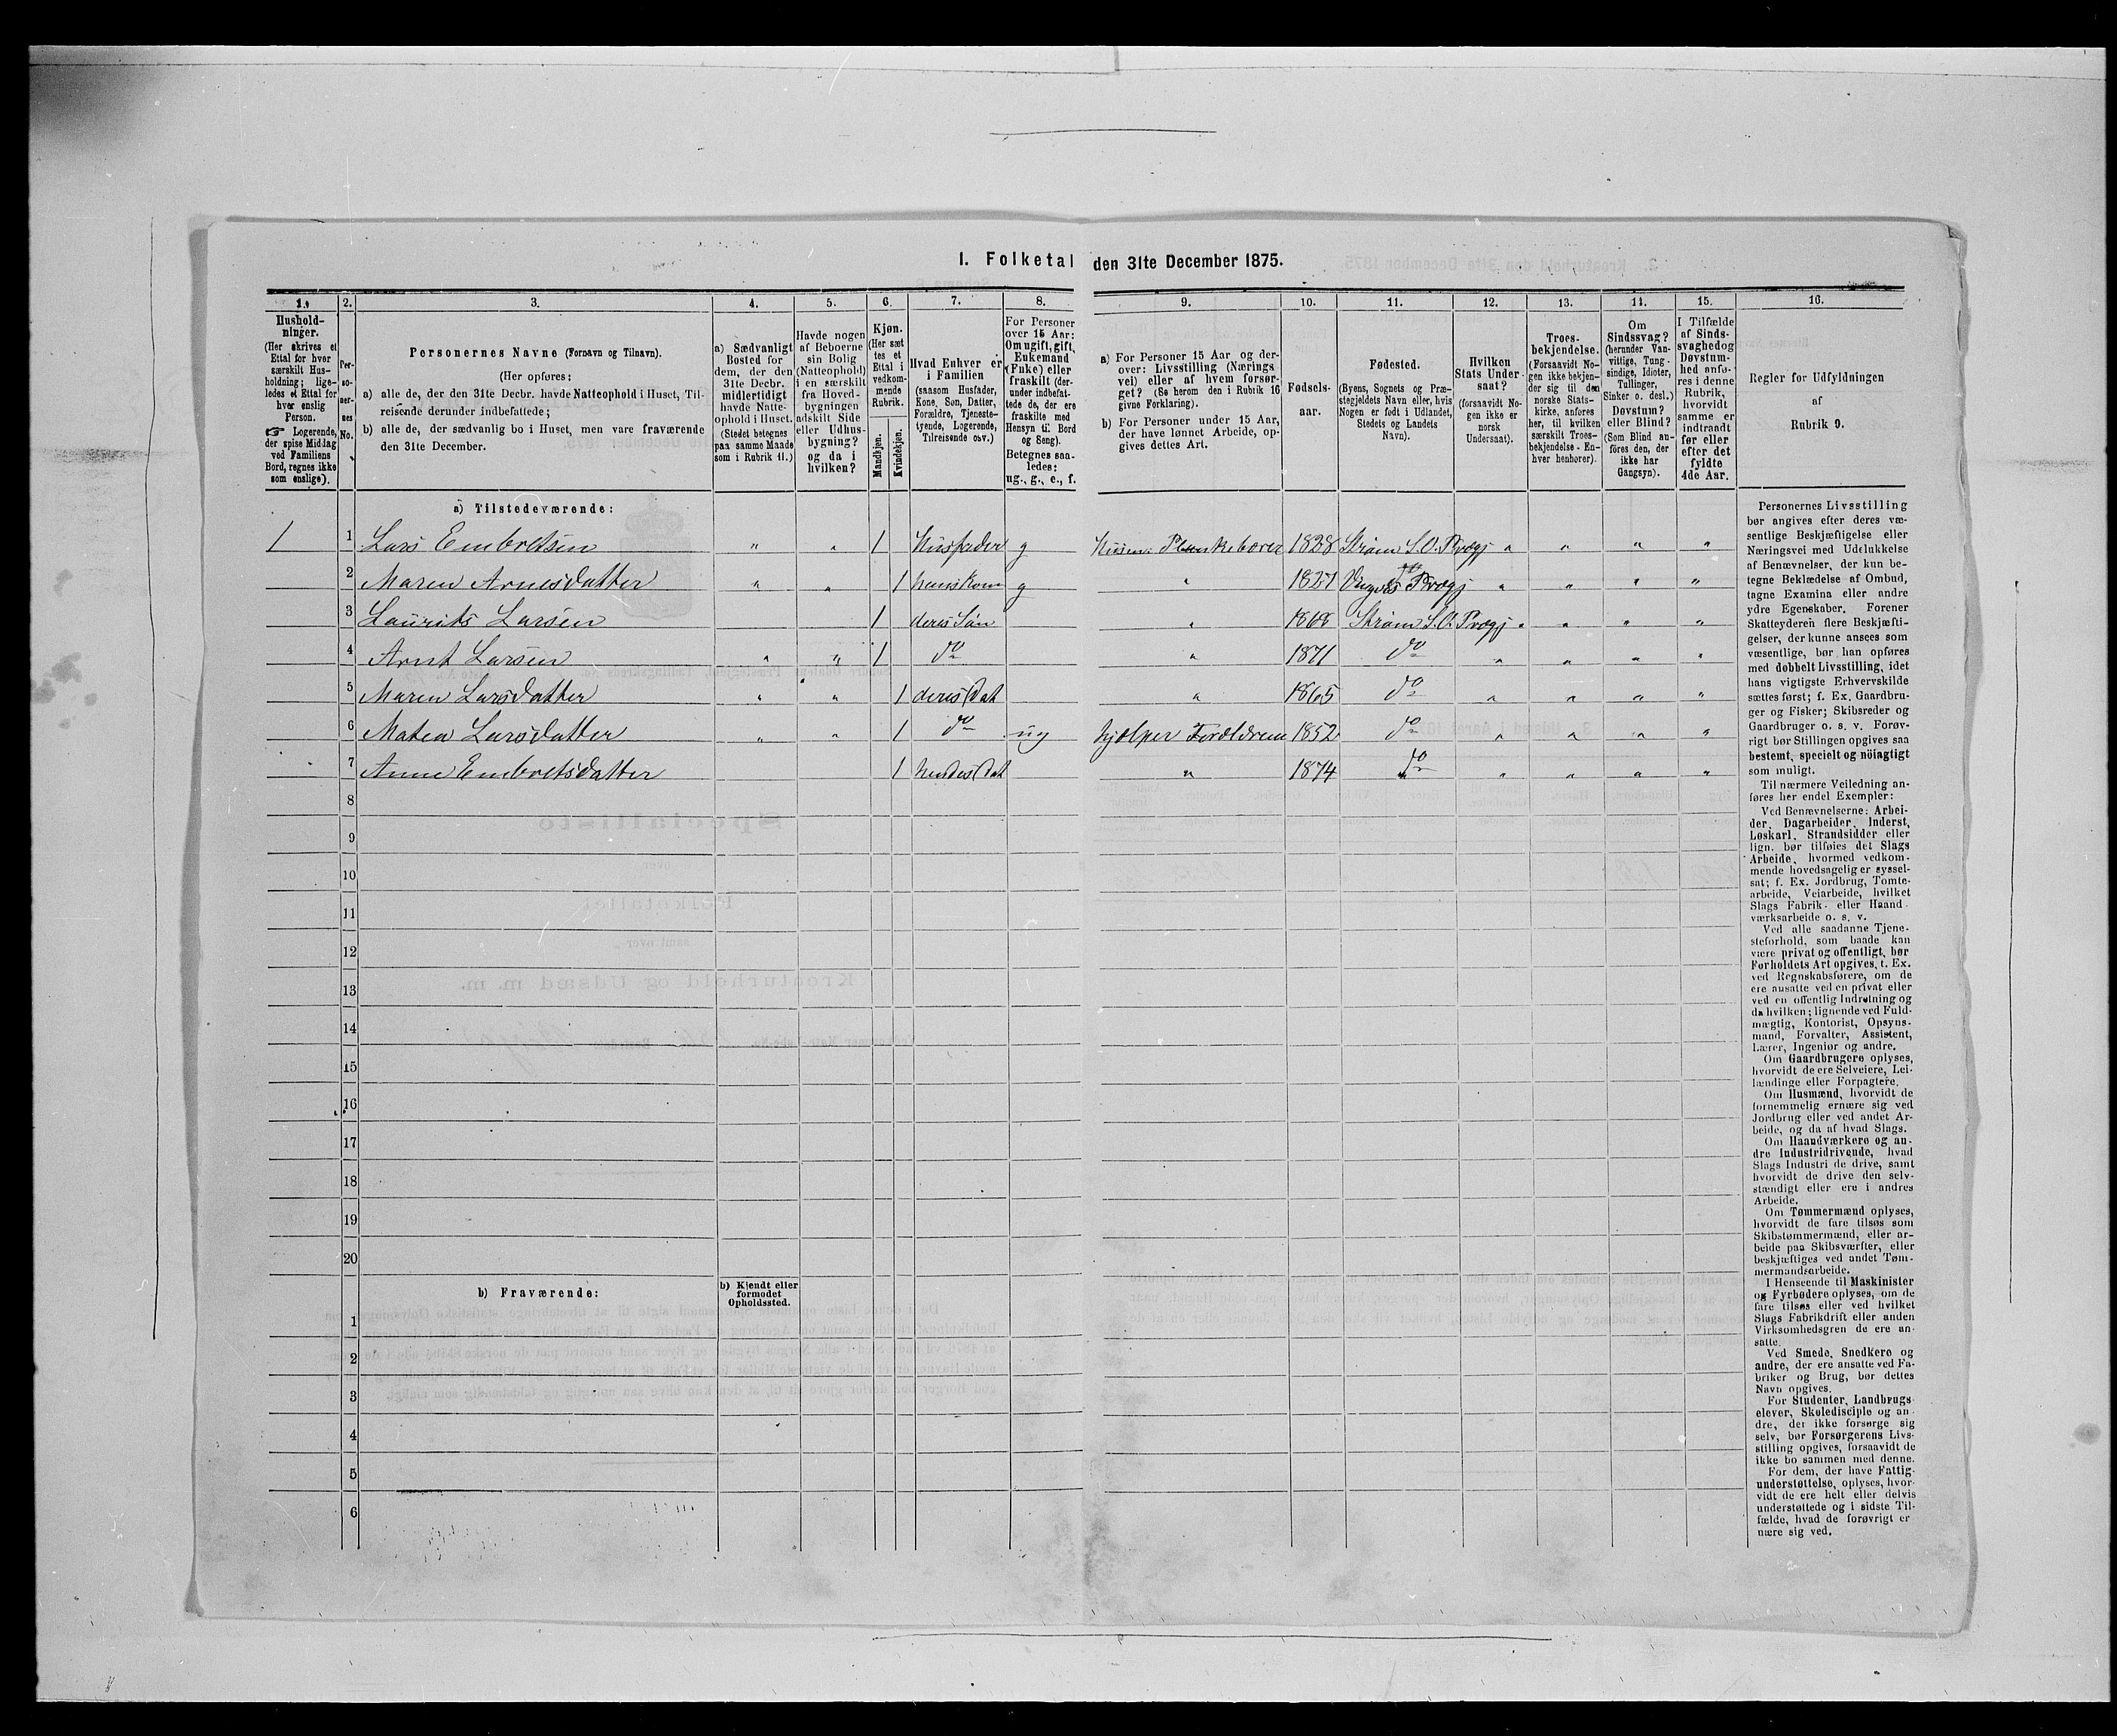 I. Folketal den 31te December 1875.
1. 2. 3. 4. 5. 6. 7. 8. 9. 10. 11. 12. 13. 14. 15. 16.
Hushold-
ninger.
(Her skrives et
Ettal for hver
særskilt Hus-
holdning; lige-
ledes et Ettal for
hver enslig
Person.
☞ Logerende,
der spise Middag
ved Familiens
Bord, regnes ikke
som enslige).
Per-
so-
ner-
nes
No.
Personernes Navne (Fornavn og Tilnavn).
(Her opføres:
a) alle de, der den 31te Decbr. havde Natteophold i Huset, Til-
reisende derunder indbefattede;
b) alle de, der sædvanlig bo i Huset, men vare fraværende
den 31te December.
a) Sædvanligt
Bosted for
dem, der den
31te Decbr.
midlertidigt
havde Natte-
ophold i Huset.
(Stedet betegnes
paa samme Maade
som i Rubrik 11.)
Havde nogen
af Beboerne
sin Bolig
(Natteophold)
i en særskilt
fra Hoved-
bygningen
adskilt Side
eller Udhus-
bygning?
og da i
hvilken?
Kjøn.
(Her sæt
tes et
Ettal i
vedkom-
mende
Rubrik.
Mandkjøn.
Kvindekjøn.
Hvad Enhver er
i Familien
(saasom Husfader,
Kone, Søn, Datter,
Forældre, Tjeneste-
tyende, Logerende,
Tilreisende osv.)
For Personer
over 15 Aar:
Om ugift, gift,
Enkemand
(Enke) eller
fraskilt (der-
under indbefat-
tede de, der ere
fraskilte med
Hensyn til Bord
og Seng).
Betegnes saa-
ledes:
ug., g., e., f.
a) For Personer 15 Aar og der-
over: Livsstilling (Nærings
vei) eller af hvem forsør-
get? (Se herom den i Rubrik 16
givne Forklaring).
b) For Personer under 15 Aar,
der have lønnet Arbeide, op-
gives dettes Art.
Fødsels-
aar.
Fødested.
(Byens, Sognets og Præ-
stegjeldets Navn eller, hvis
Nogen er født i Udlandet,
Stedets og Landets
Navn).
Hvilken
Stats Under-
saat?
(forsaavidt No-
gen ikke er
norsk
Undersaat).
Troes-
bekjendelse.
(Forsaavidt No-
gen ikke bekjen-
der sig til den
norske Stats-
kirke, anføres
her, til hvilken
særskilt Troes-
bekjendelse En-
hver henhører).
Om
Sindssvag?
(herunder Van-
vittige, Tung-
sindige, Idioter,
Tullinger,
Sinker o. desl.)
Døvstum?
eller Blind?
(Som Blind an-
føres den, der
ikke har
Gangsyn).
I Tilfælde
af Sinds-
svaghed og
Døvstum-
hed anfø-
res i denne
Rubrik,
hvorvidt
samme er
indtraadt
før eller
efter det
fyldte
4de Aar.
Regler for Udfyldningen
af
Rubrik 9.
a) Tilstedeværende:
1 1 Lars Embretsen " " 1 Husfader g Plankebærer 1828 Strøm S. O. Prægj " " " "
2 Maren Arnesdatter " " 1 hans Kone g " 1827 Prægj " " " "
3 Laurits Larsen 1 deres Søn " 1868 Strøm S. O. Prægj " " " "
4 Arnt Larsen " " 1 do " 1871 do " " " "
5 Maren Larsdatter " " 1 deres Dat " 1865 do " " " "
6 Matea Larsdatter " " 1 do ug hjælper Forældrene 1852 do " " " "
7 Anne Embretsdatter 1 hendes Dat " 1874 do " " " "
8
9
10
11
12
13
14
15
16
17
18
19
20
b) Fraværende:
b) Kjendt eller
formodet
Opholdssted.
1
2
3
4
5
6
Personernes Livsstilling
bør angives efter deres væ-
sentlige Beskjæftigelse eller
Næringsvei med Udelukkelse
af Benævnelser, der kun be-
tegne Beklædelse af Ombud,
tagne Examina eller andre
ydre Egenskaber. Forener
Skatteyderen flere Beskjæfti-
gelser, der kunne ansees som
væsentlige, bør han opføres
med dobbelt Livsstilling, idet
hans vigtigste Erhvervskilde
sættes først; f. Ex. Gaardbru-
ger og Fisker; Skibsreder og
Gaardbruger o. s. v. Forøv-
rigt bør Stillingen opgives saa
bestemt, specielt og nöiagtigt
som muligt.
Til nærmere Veiledning an-
føres her endel Exempler:
Ved Benævnelserne: Arbei-
der, Dagarbeider, Inderst,
Løskarl, Strandsidder eller
lign. bør tilføies det Slags
Arbeide, hvormed vedkom-
mende hovedsagelig er syssel-
sat; f. Ex. Jordbrug, Tomte-
arbeide, Veiarbeide, hvilket
Slags Fabrik- eller Haand-
værksarbeide o. s. v.
Ved alle saadanne Tjene-
steforhold, som baade kan
være privat og offentligt, bør
Forholdets Art opgives, t. Ex.
ved Regnskabsførere, om de
ere ansatte ved en privat eller
ved en offentlig Indretning og
da hvilken; lignende ved Fuld-
mægtig, Kontorist, Opsyns-
mand, Forvalter, Assistent,
Lærer, Ingeniør og andre.
Om Gaardbrugere oplyses,
hvorvidt de ere Selveiere, Lei-
lændinge eller Forpagtere.
Om Husmænd, hvorvidt de
fornemmelig ernære sig ved
Jordbrug eller ved andet Ar-
beide, og da af hvad Slags.
Om Haandværkere og an-
dre Industridrivende, hvad
Slags Industri de drive, samt
hvorvidt de drive den selv-
stændigt eller ere i andres
Arbeide.
Om Tømmermænd oplyses,
hvorvidt de fare tilsøs som
Skibstømmermænd, eller ar-
beide paa Skibsværfter, eller
beskjæftiges ved andet Tøm-
mermandsarbeide.
I Henseende til Maskinister
og Fyrbødere oplyses, om de
fare tilsøs eller ved hvilket
Slags Fabrikdrift eller anden
Virksomhedsgren de ere an-
satte.
Ved Smede, Snedkere og
andre, der ere ansatte ved Fa-
briker og Brug, bør dettes
Navn opgives.
For Studenter, Landbrugs-
elever, Skoledisciple og an-
dre, der ikke forsørge sig
selv, bør Forsørgerens Livs-
stilling opgives, forsaavidt de
ikke bo sammen med denne.
For dem, der have Fattig-
understøttelse, oplyses, hvor-
vidt de ere helt eller delvis
understøttede og i sidste Til-
fælde, hvad de forøvrigt er-
nære sig ved.